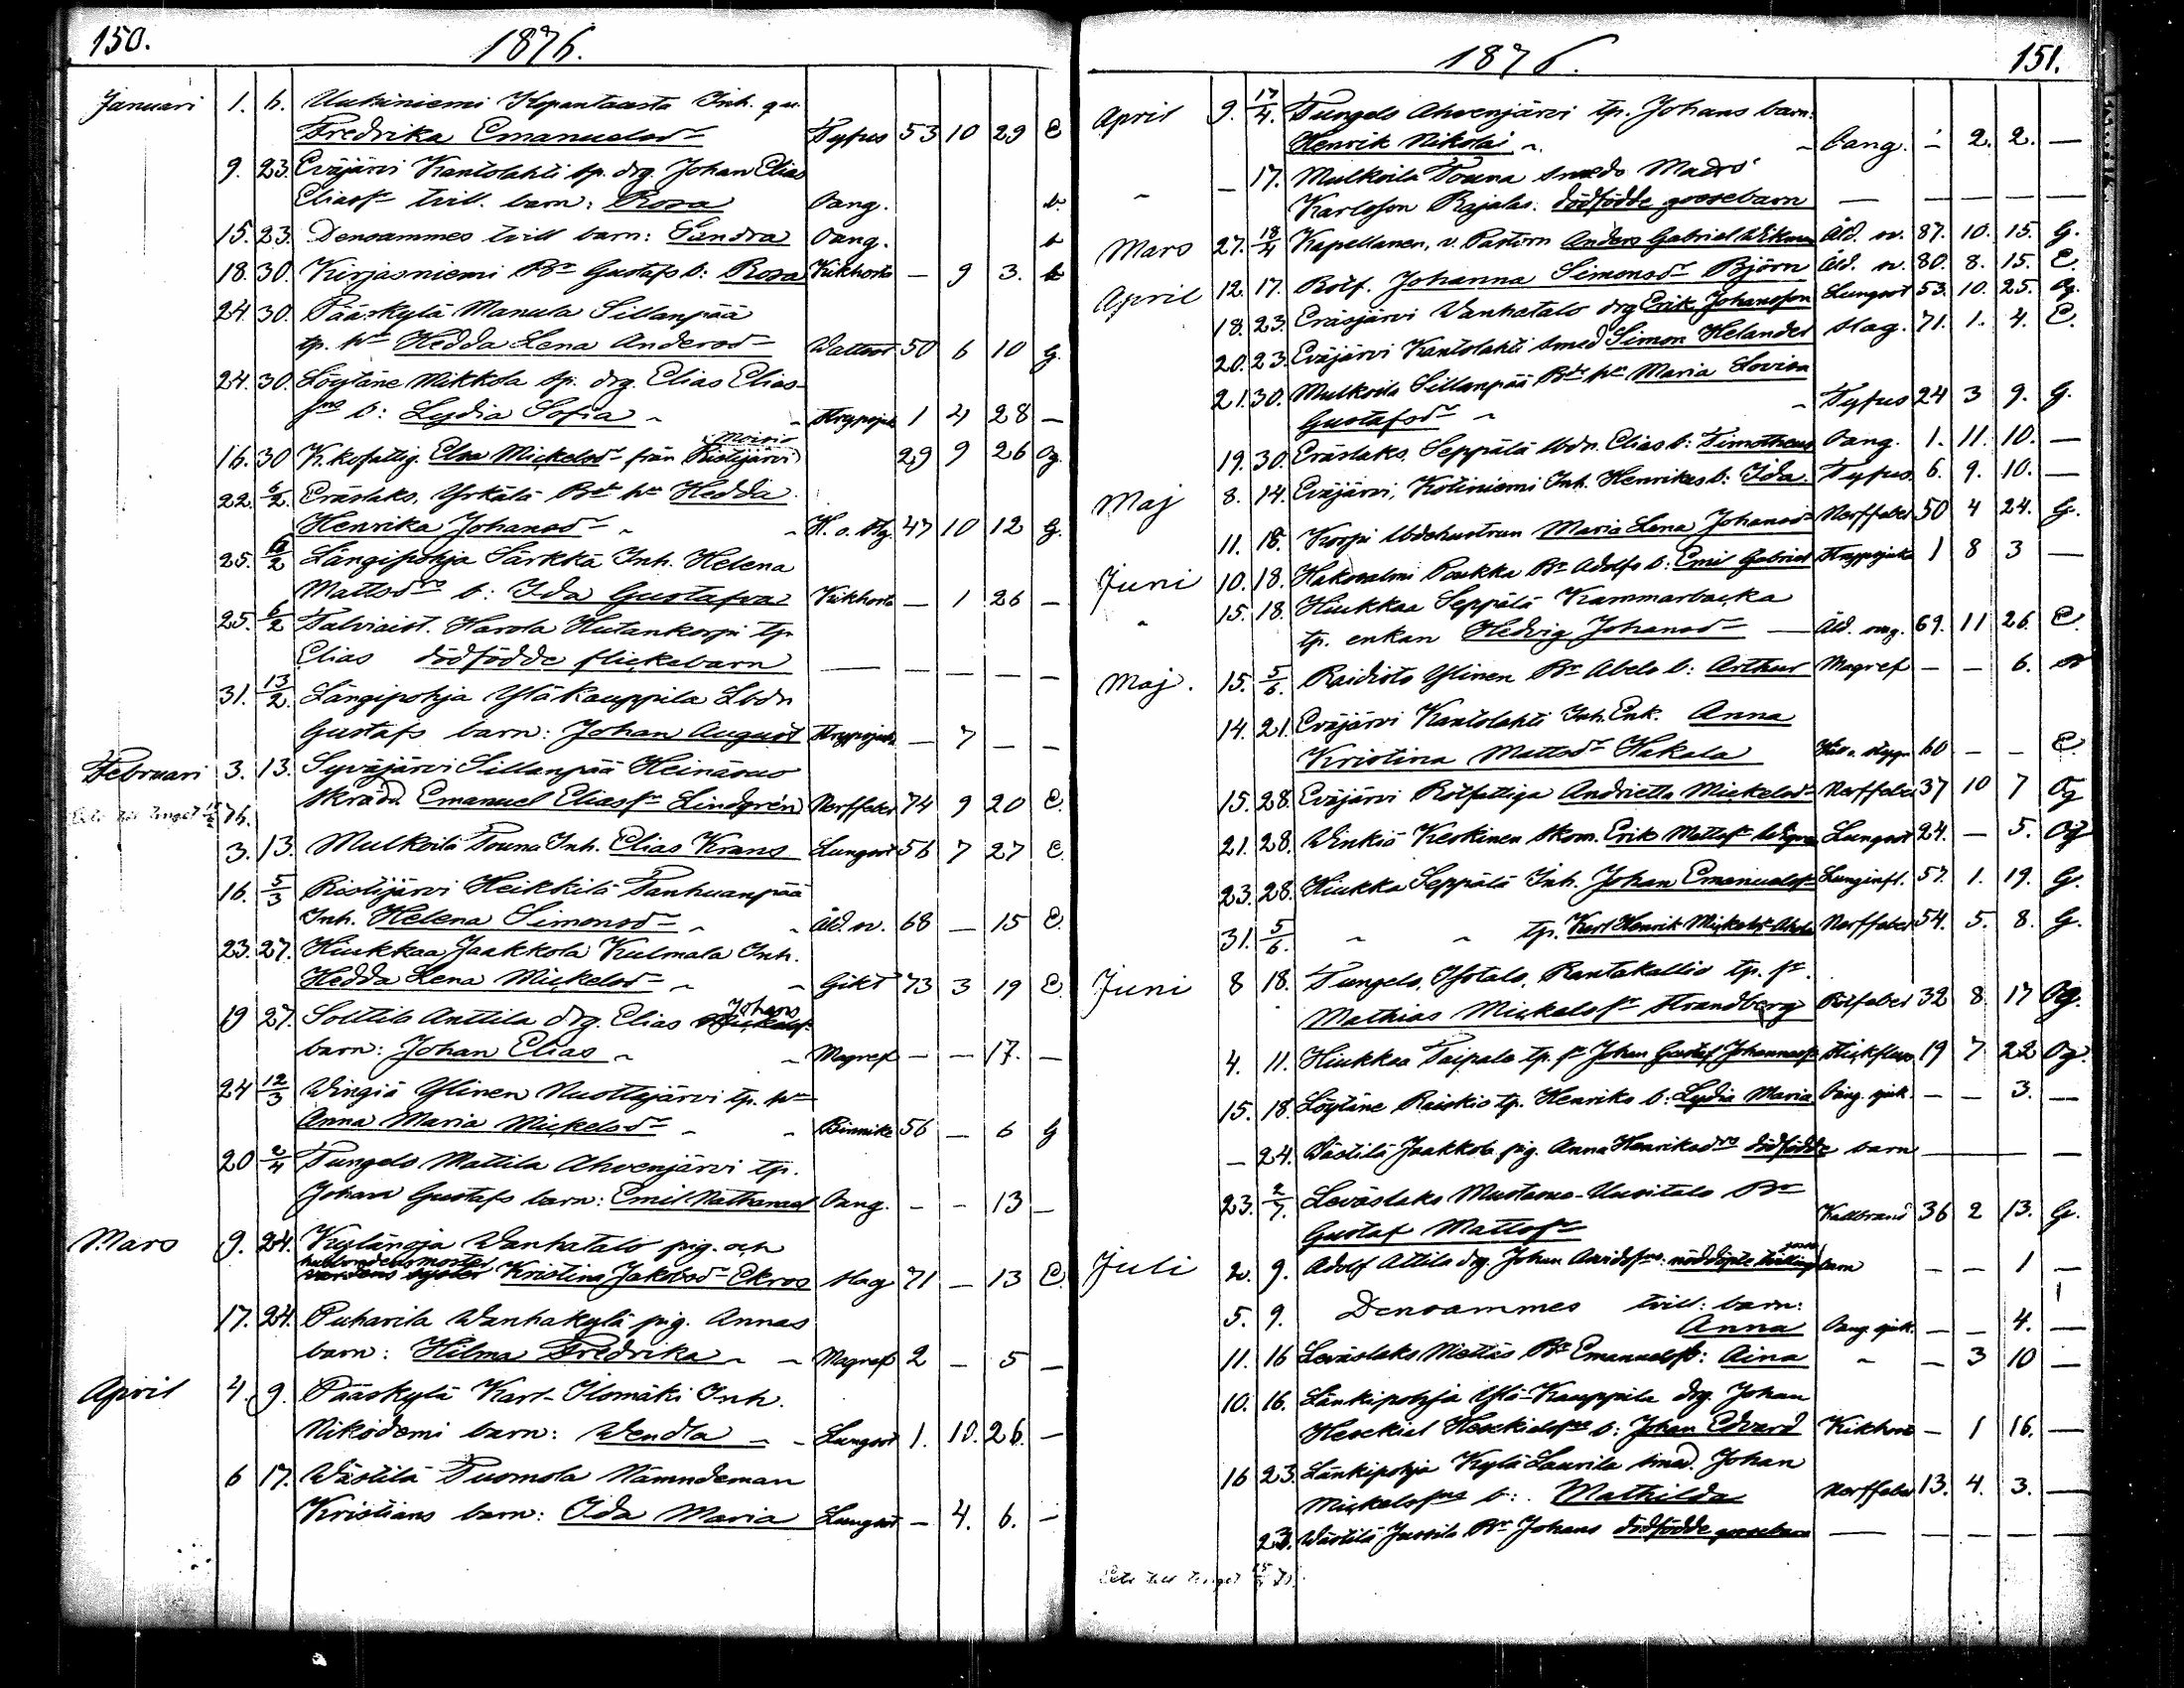 150.
1876.
Januari 1. 6. Uukiniemi Kopantausta Inh. qu.
Fredrika Emanuelsdr Tyfus 53 10 29 E
9. 23. Eväjärvi Kantolahti sp. drg. Johan Elias
Eliasfr tvill. barn: Rosa Oang. b.
15. 23. Densammes tvill barn: Sandra Oang. b
18. 30. Kirjasniemi Br Gustafs b: Rosa Kikhosta — 9 3. b
24. 30. Pääskylä Manula Sillanpää
tp. hu Hedda Lena Andersdr Wattsot 50 6 10 G.
24. 30. Löytäne Mikkola sp. drg. Elias Elias-
fns b: Lydia Sofia " " Strypsjuk 1 4 28 —
16. 30 K.kofattig. Elsa Mickelsdr från Ristijärvi 29 9 26 Og.
Moisio
22. 6/2. Eräslaks. Yrkälä Bds hu Hedda
Henrika Johansdr " " H. o. Stg. 47 10 12 G.
25. 6/2 Längipohja Särkkä Inh. Helena
Mattsdrs b: Ida Gustafva Kikhosta — 1 26 —
25. 6/2 Talviaist. Harola Hutankorpi tp.
Elias dödfödde flickebarn — — — —
31. 13/2. Längipohja Yläkauppila Lbdn
Gustafs barn: Johan August Strypsjuka — 7 — —
Februari 3. 13. Syväjärvi Sillanpää Heinäsuo
skrädd. Emanuel Eliasfr Lindgrén Nerffeber 74 9 20 E.
76.
3. 13. Mulkoila Touna Inh. Elias Krans Lungsot 56 7 27 E.
16. 5/3 Ristijärvi Heikkilä Tanhuanpää
Inh. Helena Simonsdr " " Åld. sv. 68 — 15 E.
23. 27. Hiukkaa Jaakkola Kulmala Inh.
Hedda Lena Mickelsdr " " Gikt 73 3 19 E.
19 27. Solttila Anttila drg. Elias Johans
barn: Johan Elias " " Magref — — 17. —
24 12/3 Wingiä Ylinen Nuottajärvi tp. hu
Anna Maria Mickelsdr " " Binnike 56 — 6 G
20 2/4 Tungels Mattila Ahvenjärvi tp.
Johan Gustafs barn: Emil Nathanael Oang. — — 13 —
Mars 9. 24. Kylänoja Wanhatalo pig. och
husbondens moster
värdens syster Kristina Jakobsdr Ekros Slag 71 — 13 E.
17. 24. Puharila Wanhakylä pig. Annas
barn: Hilma Fredrika " " Magref 2 — 5 —
April 4. 9. Pääskylä Karl-Ilomäki Inh.
Nikodemi barn: Wendla " " Lungsot 1. 10. 26. —
6 17. Wästilä Tuomola Nämndeman
Kristians barn: Ida Maria Lungsot — 4. 6. —
1876.
151.
April 9. 17/4. Tungels Ahvenjärvi tp. Johans barn:
Henrik Nikolai " " Oang. — 2. 2. —
" — 17. Mulkoila Touna smeds Mads
Karlsson Rajalas: dödfödde gossebarn — — — — —
Mars 27. 18/4 Kapellanen, v. Pastorn Anders Gabriel Wikman Åld. sv. 87. 10. 15. G.
April 12. 17. Rotf. Johanna Simonsdr Björn Åld. sv. 80. 8. 15. E.
18. 23. Eräsjärvi Wanhatalo drg Erik Johansson Lungsot 53. 10. 25. Og.
20. 23. Eväjärvi Kantolahti smed Simon Helander Slag. 71. 1. 4. E.
21. 30. Mulkoila Sillanpää Bds hu Maria Lovisa
Gustafsdr " " Tyfus 24 3 9. G.
19. 30. Eräslaks. Seppälä lbdn. Elias b: Timotheus Oang. 1. 11. 10. —
Maj 8. 14. Eväjärvi, Kotiniemi Inh. Henrikas b: Ida. Tyfus. 6. 9. 10. —
11. 18. Korpi lbdehustrun Maria Lena Johansdr Nerffeber 50 4 24. G.
Juni 10. 18. Hakosalmi Poukka Br Adolfs b: Emil Gabriel Strypsjuka 1 8 3 —
" 15. 18. Hiukkaa Seppälä Kammarbacka
tp. enkan Hedvig Johansdr — Åld. svag. 69. 11 26. E.
Maj. 15. 5/6. Raidisto Ylinen Br Abels b: Arthur Magref — — 6. —
14. 21. Eväjärvi Kantolahti Inh. Enk. Anna
Kristina Mattsdr Hakala 60 — — E
15. 28. Eväjärvi Rotfattiga Andrietta Mickelsdr Nerffeber 37 10 7 Og
21. 28. Winkiä Keskinen skom. Erik Mattsfr Lungsot 24. — 5. Og
23. 28. Hiukka Seppälä Inh. Johan Emanuelsfr Lunginfl. 57. 1. 19. G.
31. 5/6. " " tp. Karl Henrik Mickelsfr Nerffeber 54. 5. 8. G.
Juni 8 18. Tungels, Isotalo, Rantakallio tp. fr.
Mathias Mickelsfr Strandberg Rötfeber 32 8. 17 Og.
4. 11. Hiukkaa Taipale tp. fr Johan Gustaf Johannasfr Stickfluss 19 7 22 Og.
15. 18. Löytäne Raiskio tp. Henriks b: Lydia Maria Oang. sjuk. — — 3. —
— 24. Wästilä Jaakkola pig. Anna Henriksdrs dödfödde barn — — —
23. 2/7. Leväslaks Mustasuo-Uusitalo Br
Gustaf Mattsfr Kallbrand 36 2 13. G.
Juli 2. 9. Adolf Attila drg. Johan Davidsfns: nöddöpte tvilling barn — — 1 —
5. 9. Densammes tvill: barn:
Anna Oang. sjuk. — — 4. —
11. 16 Leväslaks Mattas Br Emanuels b: Aina " — 3 10 —
10. 16. Länkipohja Ylä-Kauppila drg. Johan
Hesekiel Hesekielsfns b: Johan Edvard Kikhosta — 1 16. —
16 23. Länkipohja Kylä Laurila smed. Johan
Mickelsfns b: Mathilda Nerffeber 13. 4. 3. —
23. Wästilä Jussila Br Johans dödfödde gossebarn — — — —